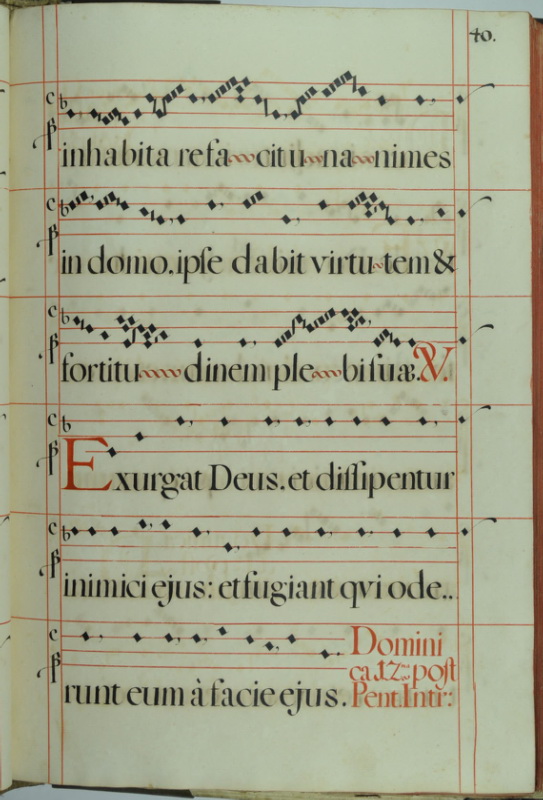 40.
inhabita refa citu na nimes
in domo. ipse dabit virtu tem &
fortitu dinem ple bi suæ. V.
Exurgat Deus. et dissipentur
inimici ejus: et fugiant qvi ode..
runt eum à facie ejus.
Domini
ca 12.ª post
Pent. Intr: